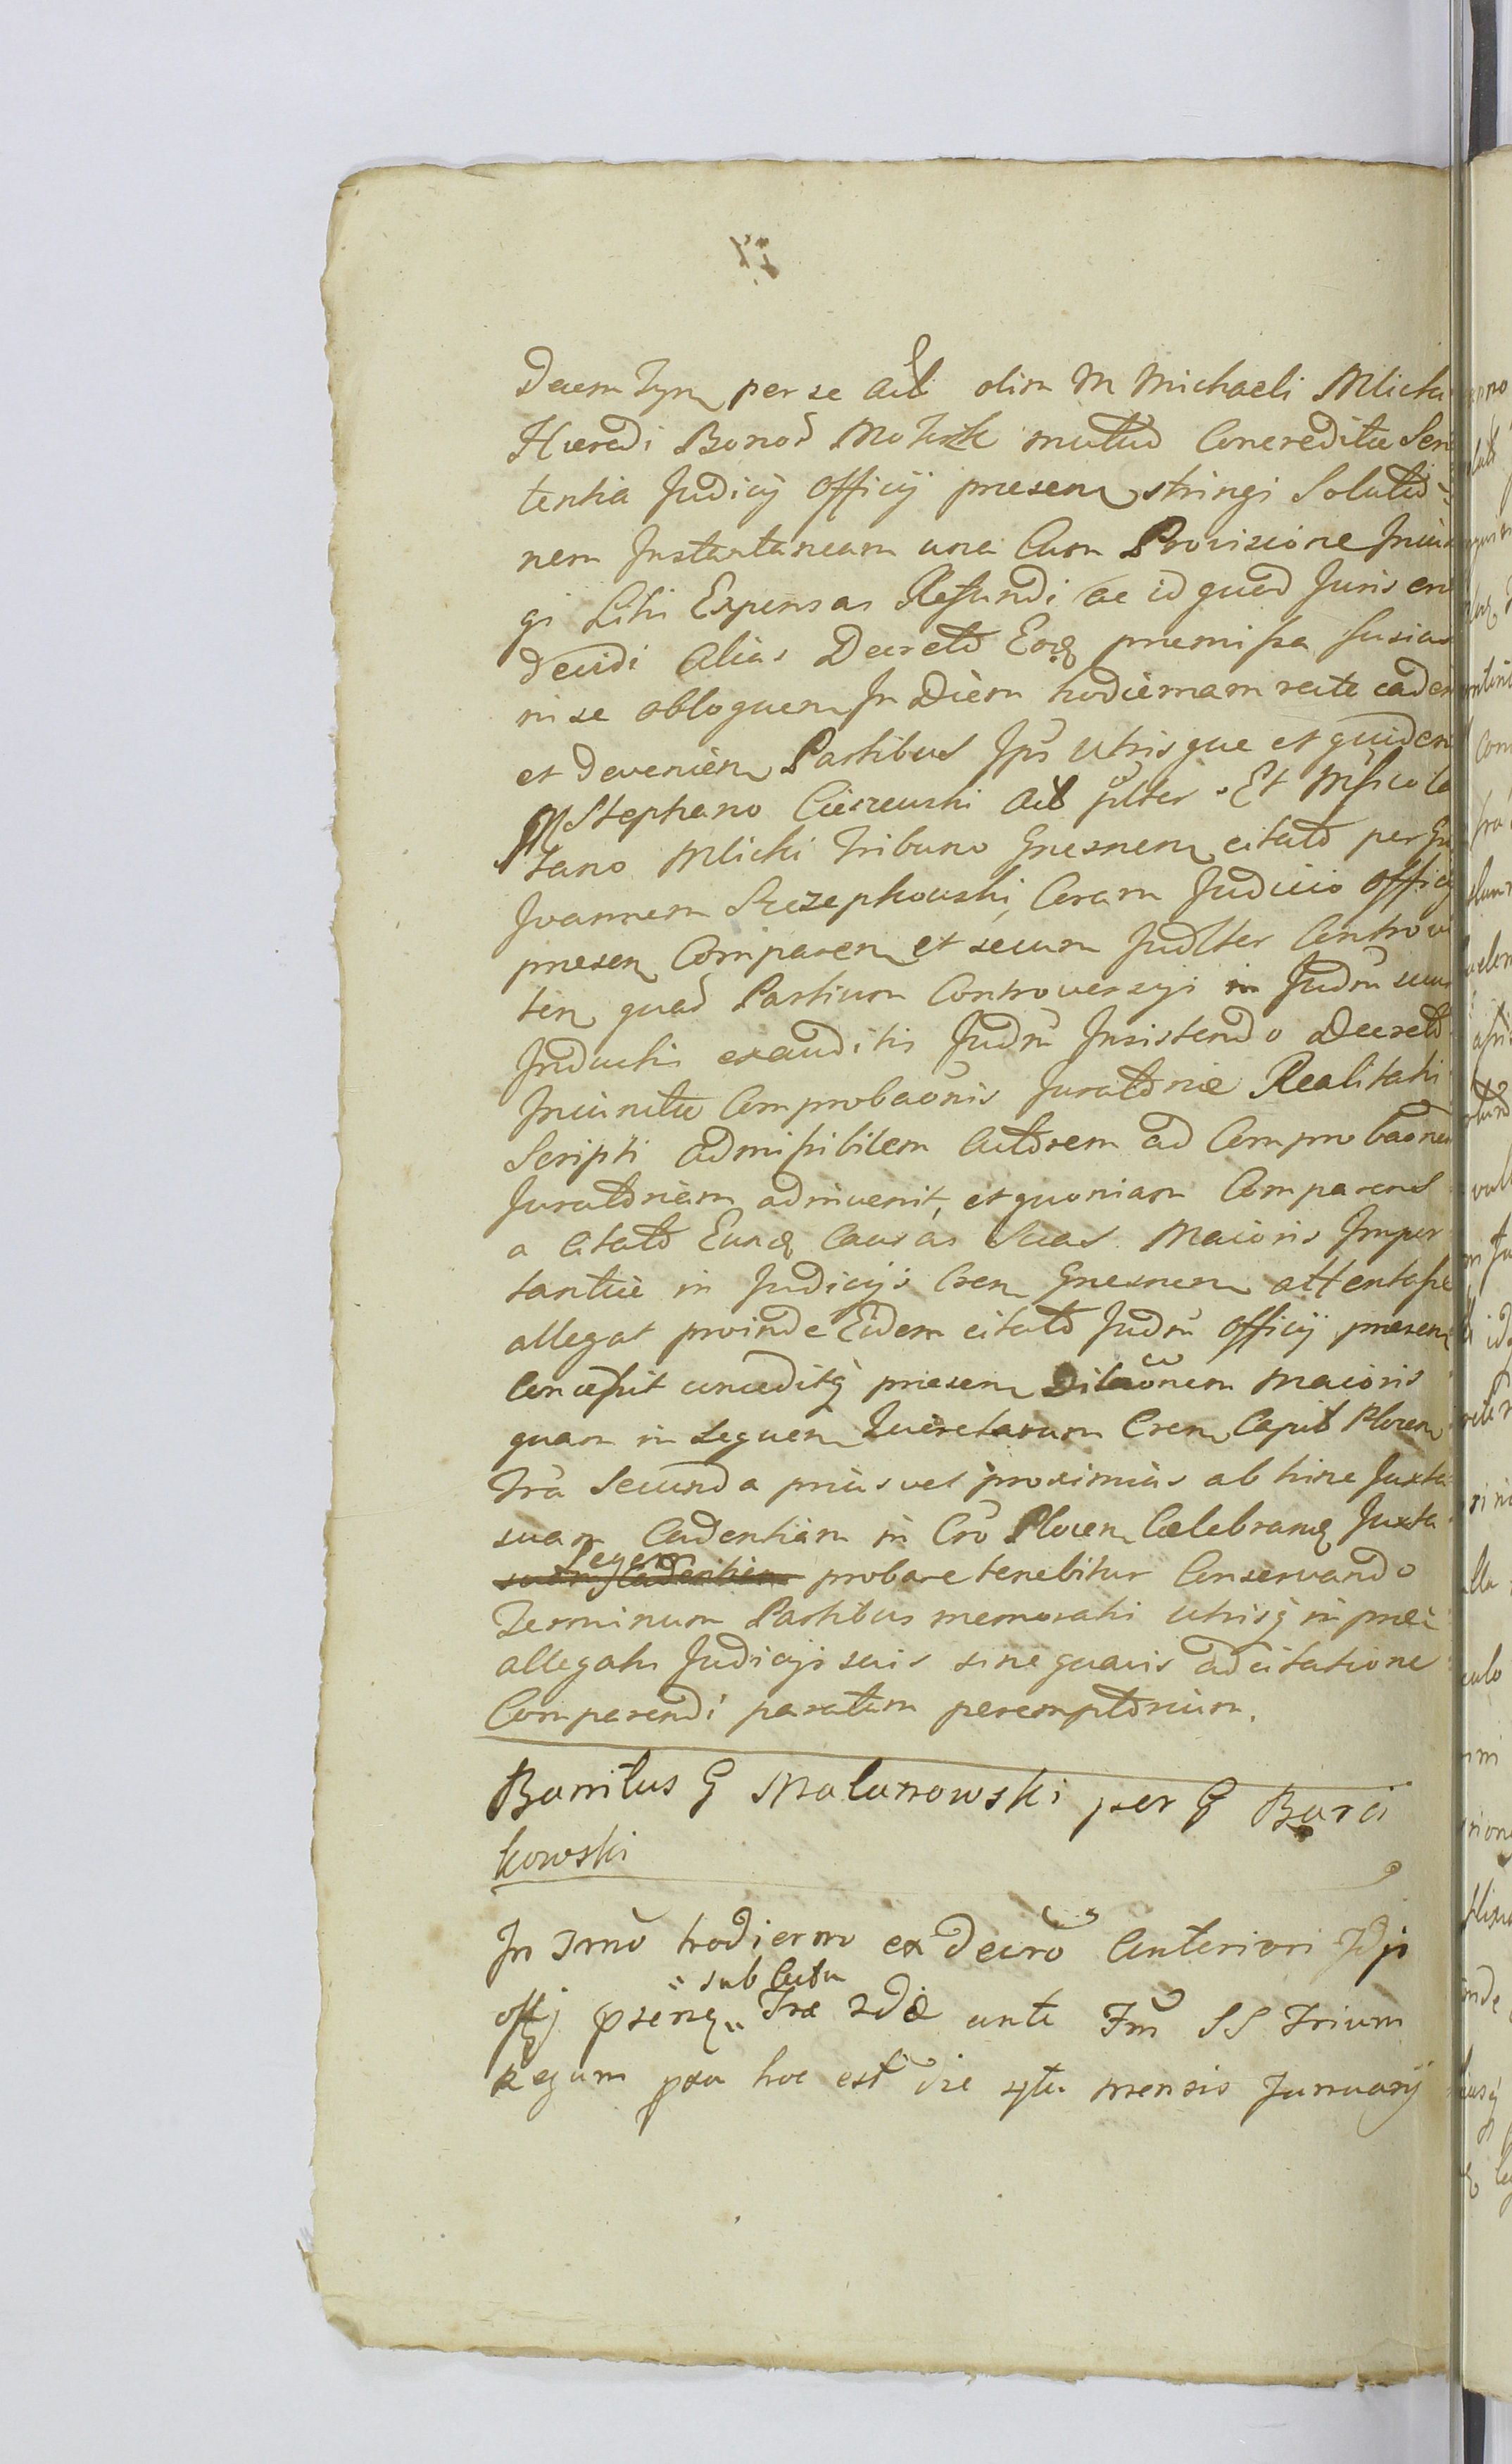 Decem Tyn per se Act olim M Michaeli Mlicki
Hæredi Bonor Moturk mutuo Concreditæ Sen
tentia Judicij Officij præsen stringi Solutio-
nem Instantaneam una Cum Provisione Iniun
gi Litis Expensas Refundi ac id quod Juris erit
decidi Alias Decreto Eoq præmissa fusius
in se obloquen In Diem hodiernam recte caden
et devenien Partibus Ipis Utrisque et quidem
M Stephano Cieszewski Act pslter Et Mfico Ca
tano Mlicki Tribuno Gnesnen citato per G
Joannem Szczepkowski, Coram Judicio Officij
præsen Comparen et secum Judlter Controver
ten quod Partium Controversijs in Judm suum
Inductis exauditis Judm Insistendo Decreto
Iniunctæ Comprobaonis Juratoriæ Realitatis
Scripti admissibilem Actorem ad Comprobaonem
Juratoriam adinvenit, et quoniam Comparens
a Citato Eund Causas Suas Maioris Impor
tantiæ in Judicijs Cren Gnesnen attentasse
allegat proinde Eidem citato Judm Officij præsen
Concessit conceditq præsen Dilaonem Maioris
quam in sequen Querelarum Cren Capit Plocen
Tra Secunda prius vel proximius ab hinc Juxta
suam Cadentiam in Cro Plocen Celebrand Juxta
Legem
suam Cadentiam probare tenebitur Conservando
Terminum Partibus memoratis utrisq in præ
allegatis Judicijs suis sine quavis adcitatione
Comparendi paratum peremptorium.
Banitus G Malanowski per G Barci
kowski
In Tmo hodierno ex decro Anteriori Jdji
" sub Actu
offij psenq " Træ 2dæ ante Fm SS Trium
Regum pxa hoc est die 4ta mensis January